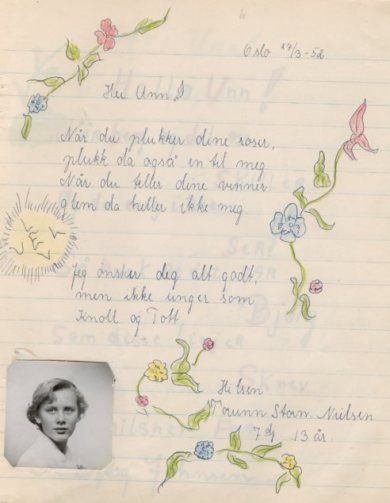 Oslo 17/3-52.
Hei Ann!
Når du plukker dine roser,
plukk da også en til meg.
Når du teller dine venner
glem da heller ikke meg.
Jeg ønsker deg alt godt,
men ikke unger som
Knoll og Tott.
Hilsen
Torunn Storm. Nielsen
7 dj 13 år.